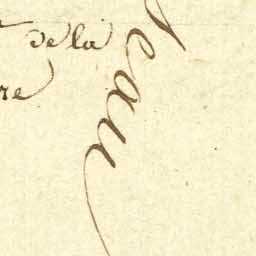 de la
re
eau